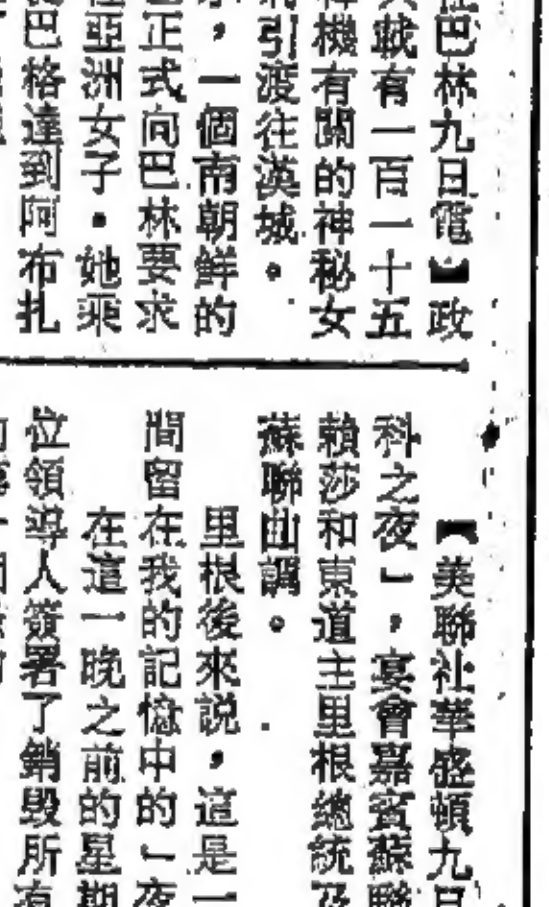 巴林九日電】政
載有一百一十五
機有關的神秘女
引渡往漢城。
，一個南朝鮮的
正式向巴林要求
亞洲女子。她乘
巴格達到阿布扎
【美聯社華盛頓九日
科之夜」，宴會嘉賓蘇聯
賴莎和東道主里根總統及
蘇聯曲調。
里根後來說，這是一
間留在我的記憶中的「夜
在這一晚之前的星期
位領導人簽署了銷毀所有